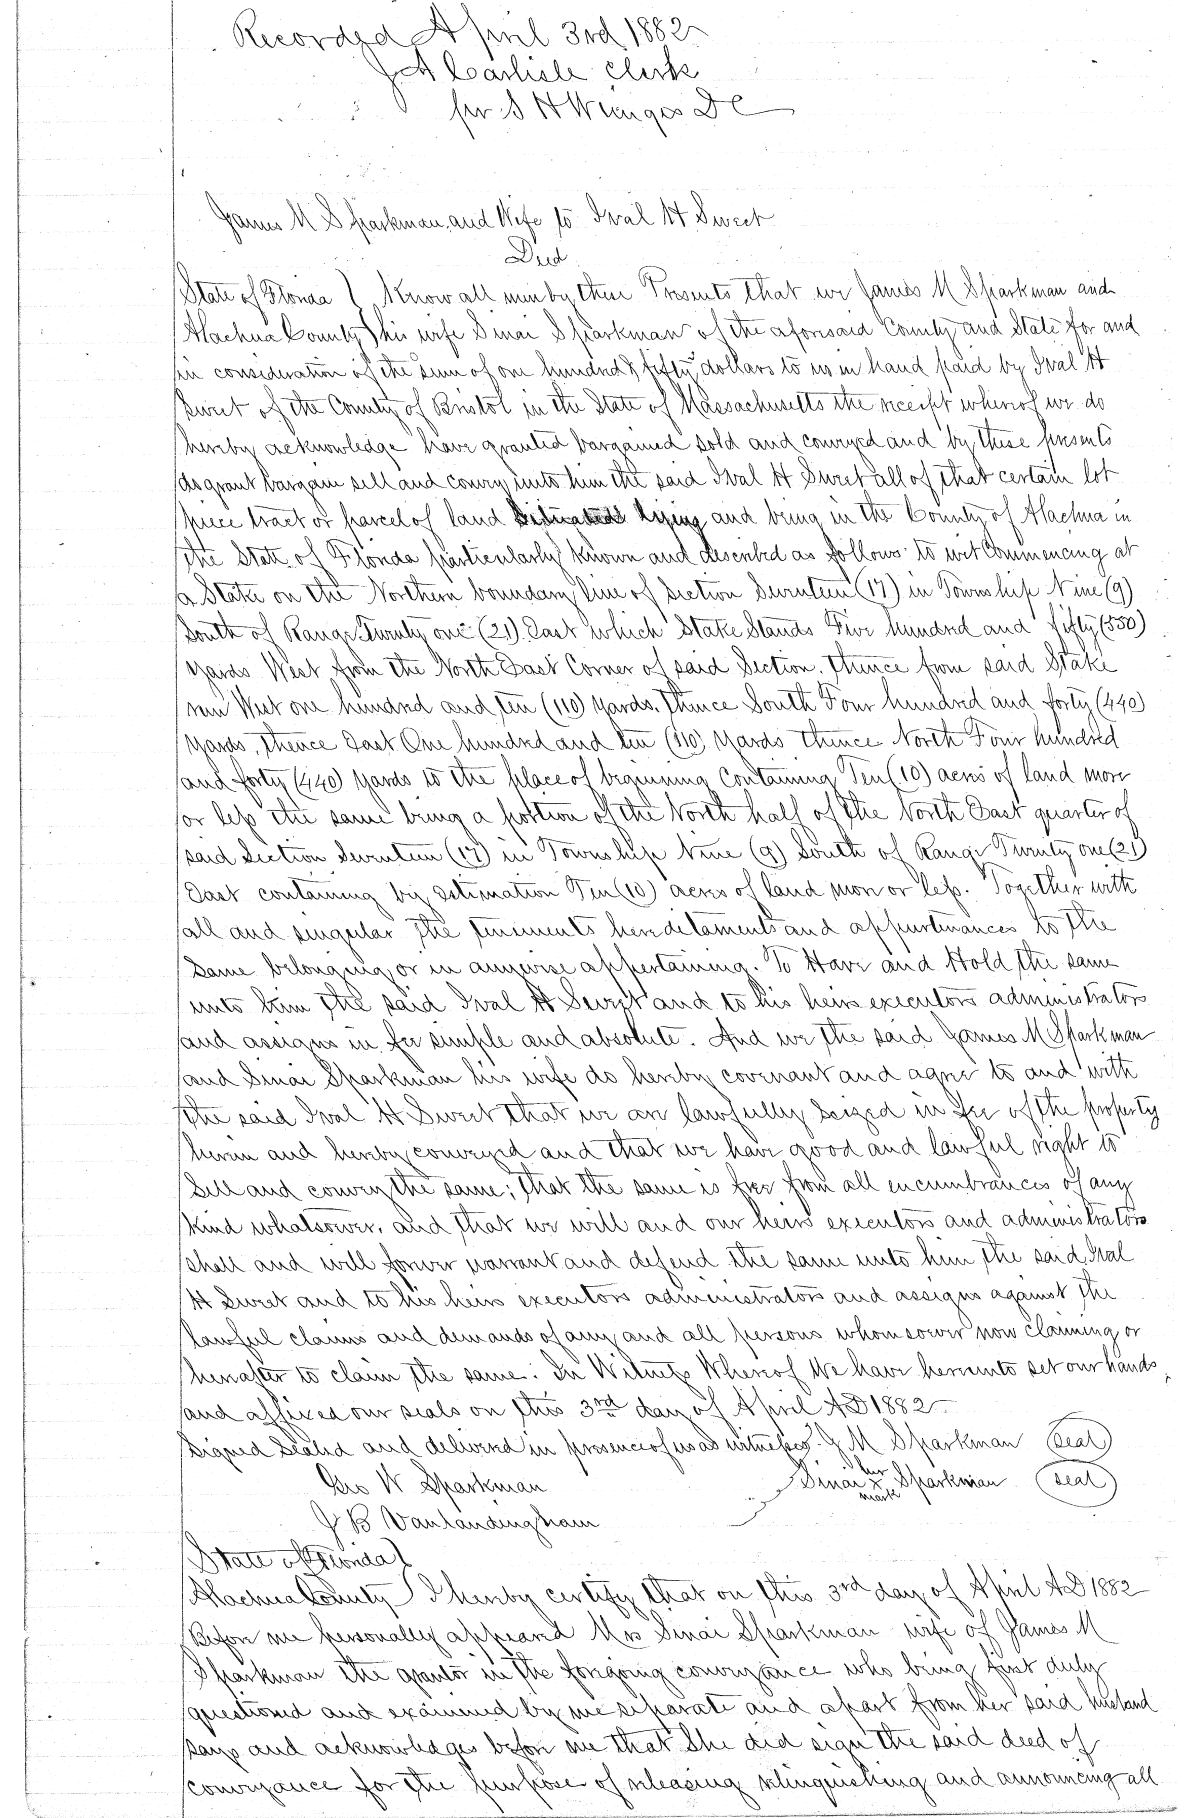 Recorded April 3rd 1882
J A Carlisle Clerk
per S H Wienges D C
James M Sparkman and Wife to Ival H Sweet
Deed
State of Florida } Know all men by these Presents that we James M Sparkman and
Alachua County } his wife Sinai Sparkman of the aforesaid County and State for and
in consideration of the sum of one hundred & fifty dollars to us in hand paid by Ival H
Sweet of the County of Bristol in the State of Massachusetts the receipt whereof we do
hereby acknowledge have granted bargained sold and conveyed and by these presents
do grant bargain sell and convey unto him the said Ival H Sweet all of that certain lot
piece tract or parcel of land situated lying and being in the County of Alachua in
the State of Florida particularly known and described as follows to wit Commencing at
a Stake on the Northern boundary line of Section Seventeen (17) in Township Nine (9)
South of Range Twenty one (21) East which Stake Stands Five hundred and fifty (550)
Yards West from the North East Corner of said Section. Thence from said Stake
run West one hundred and ten (110) Yards. Thence South Four hundred and forty (440)
Yards, thence East One hundred and ten (110) Yards thence North Four hundred
and forty (440) Yards to the place of beginning Containing Ten (10) acres of land more
or less the same being a portion of the North half of the North East quarter of
said Section Seventeen (17) in Township Nine (9) South of Range Twenty one (21)
East containing by estimation Ten (10) acres of land more or less. Together with
all and singular the tenements hereditaments and appurtenances to the
same belonging or in anywise appertaining. To Have and Hold the same
unto him the said Ival H Sweet and to his heirs executors administrators
and assigns in fee simple and absolute. And we the said James M Sparkman
and Sinai Sparkman his wife do hereby covenant and agree to and with
the said Ival H Sweet that we are lawfully seized in fee of the property
herein and hereby conveyed and that we have good and lawful right to
Sell and convey the same; that the same is free from all encumbrances of any
kind whatsoever, and that we will and our heirs executors and administrators
shall and will forever warrant and defend the same unto him the said Ival
H Sweet and to his heirs executors administrators and assigns against the
lawful claims and demands of any and all persons whomsoever now claiming or
hereafter to claim the same. In Witness Whereof We have hereunto set our hands
and affixed our seals on this 3rd day of April AD 1882
Signed Sealed and delivered in presence of us as witnesses. J M Sparkman (seal)
Geo W Sparkman Sinai her x mark Sparkman (seal)
J B Vanlandingham
State of Florida }
Alachua County } I hereby certify that on this 3rd day of April AD 1882
Before me personally appeared Mrs Sinai Sparkman wife of James M
Sparkman the grantor in the foregoing conveyance who being first duly
questioned and examined by me separate and apart from her said husband
says and acknowledges before me that She did sign the said deed of
conveyance for the purpose of releasing relinquishing and announcing all